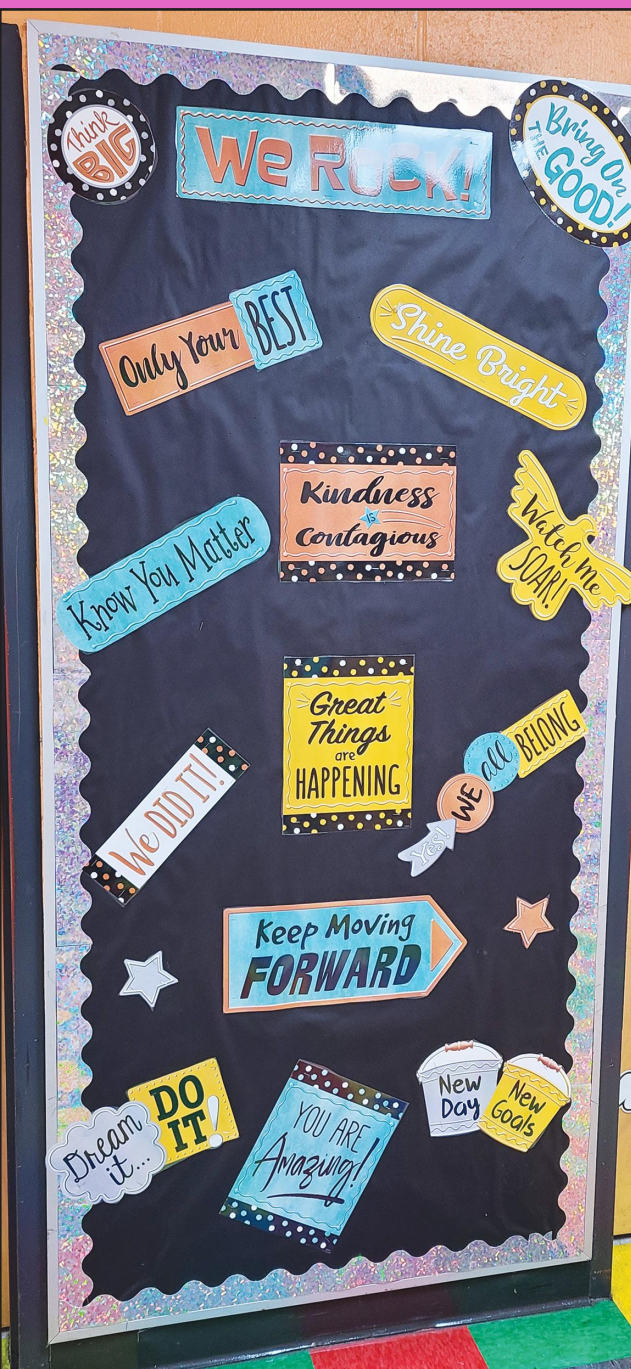 Think
BIG
We ROCK!
Bring On
THE
GOOD!
Only Your BEST
Shine Bright
Kindness
is
Contagious
Know You Matter
Watch Me
SOAR!
Great
Things
are
HAPPENING
We DID IT!
Yes! WE all BELONG
Keep Moving
FORWARD
Dream
it...
DO
IT!
YOU ARE
Amazing!
New
Day
New
Goals